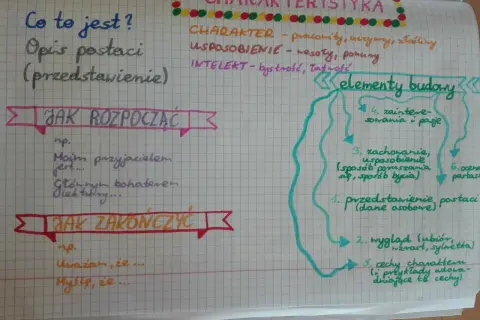 CHARAKTERYSTYKA
Co to jest?
Opis postaci
(przedstawienie)
CHARAKTER - pracowity,
USPOSOBIENIE - wesoły, ponury
INTELEKT - bystrość,
elementy budowy
4. zaintere-
sowania i pasje
3. zachowanie,
usposobienie
(sposób poruszania
się, sposób bycia)
6. ocena
postaci
1. przedstawienie postaci
(dane osobowe)
2. wygląd (ubiór,
wzrost, sylwetka)
5. cechy charakteru
(i przykłady udowa-
dniające te cechy)
JAK ROZPOCZĄĆ
np.
Moim przyjacielem
jest...
Głównym bohaterem
JAK ZAKOŃCZYĆ
np.
Uważam, że...
Myślę, że...